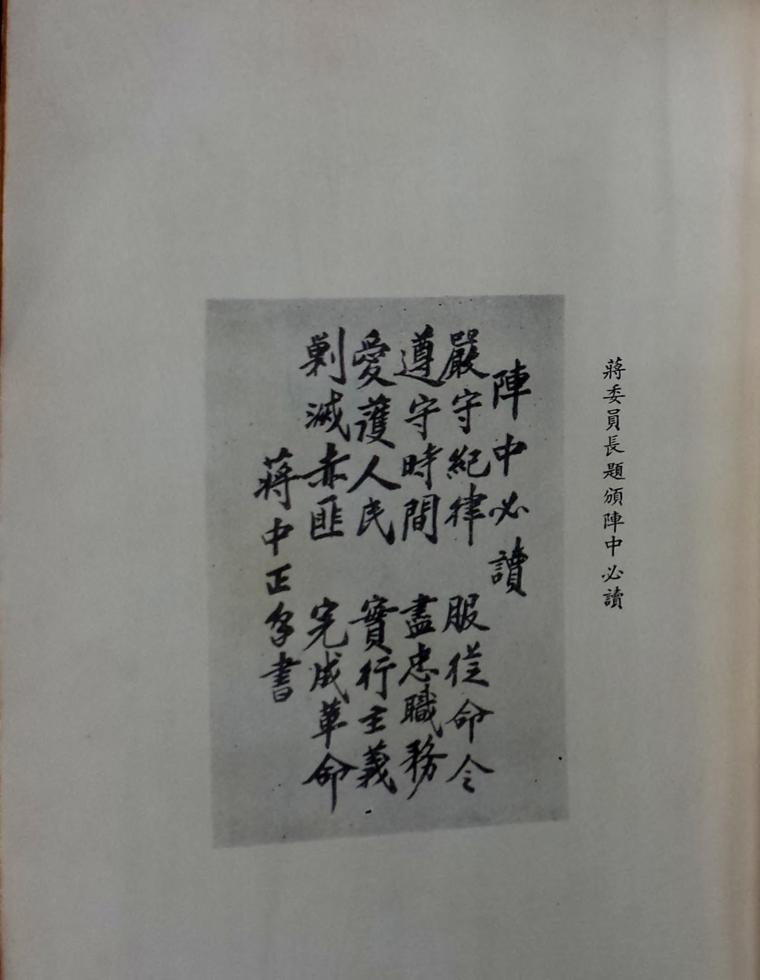 蔣委員長題頒陣中必讀
陣中必讀
嚴守紀律 服從命令
遵守時間 盡忠職務
愛護人民 實行主義
剿滅赤匪 完成革命
蔣中正手書